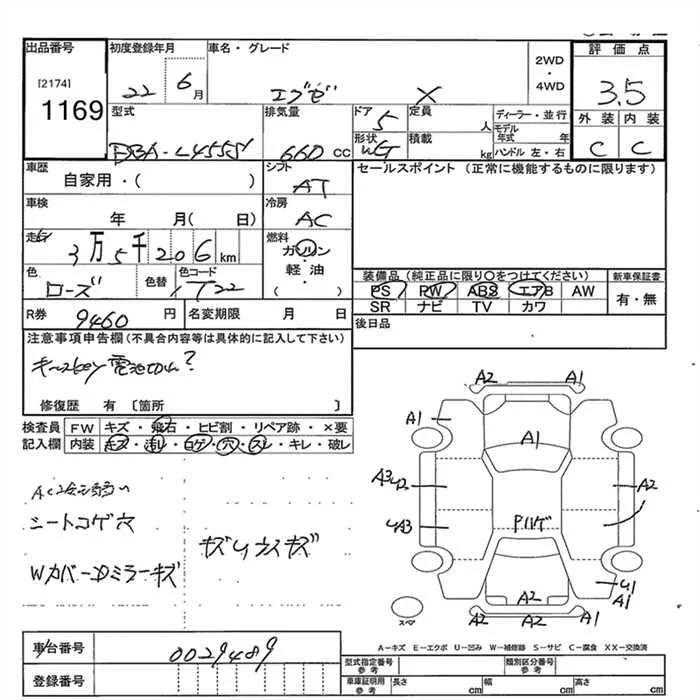 出品番号
[2174]
1169
初度登録年月
22年 6月
車名・グレード
エブゼ X
2WD
・
4WD
評価点
3.5
外装 内装
C C
型式
DBA-L455S
排気量
660 CC
ドア
5
形状
WG
定員
人
積載
kg
ディーラー・並行
モデル年式 年
ハンドル 左・右
車歴
自家用・( )
シフト
AT
セールスポイント (正常に機能するものに限ります)
車検
年 月( 日)
冷房
AC
走行
3万5千206km
燃料
ガソリン
・
軽油
( )
色
ローズ
色替
色コード
T22
装備品 (純正品に限り○をつけてください)
PS PW ABS エアB AW
SR ナビ TV カワ
新車保証書
有・無
R券
9460 円
名変期限 月 日
後日品
注意事項申告欄 (不具合内容等は具体的に記入して下さい)
キーレスkey 電池切れ?
修復歴 有 〔箇所 〕
検査員記入欄
FW キズ・飛石・ヒビ割・リペア跡・×要
内装 キズ・汚れ・コゲ・穴・スレ・キレ・破レ
シートコゲ穴
Wカバー・Dミラーキズ
キズUウスキズ
A2 A1
A1 A1
A3 U2 A2
UA3 Pハゲ
A2 U1
A1
A2 A2
スペア
A-キズ E-エクボ U-凹み W-補修跡 S-サビ C-腐食 XX-交換済
車台番号
0029489
登録番号
型式指定番号
参考
類別区分番号
参考
車庫証明用
参考
長さ cm 幅 cm 高さ cm